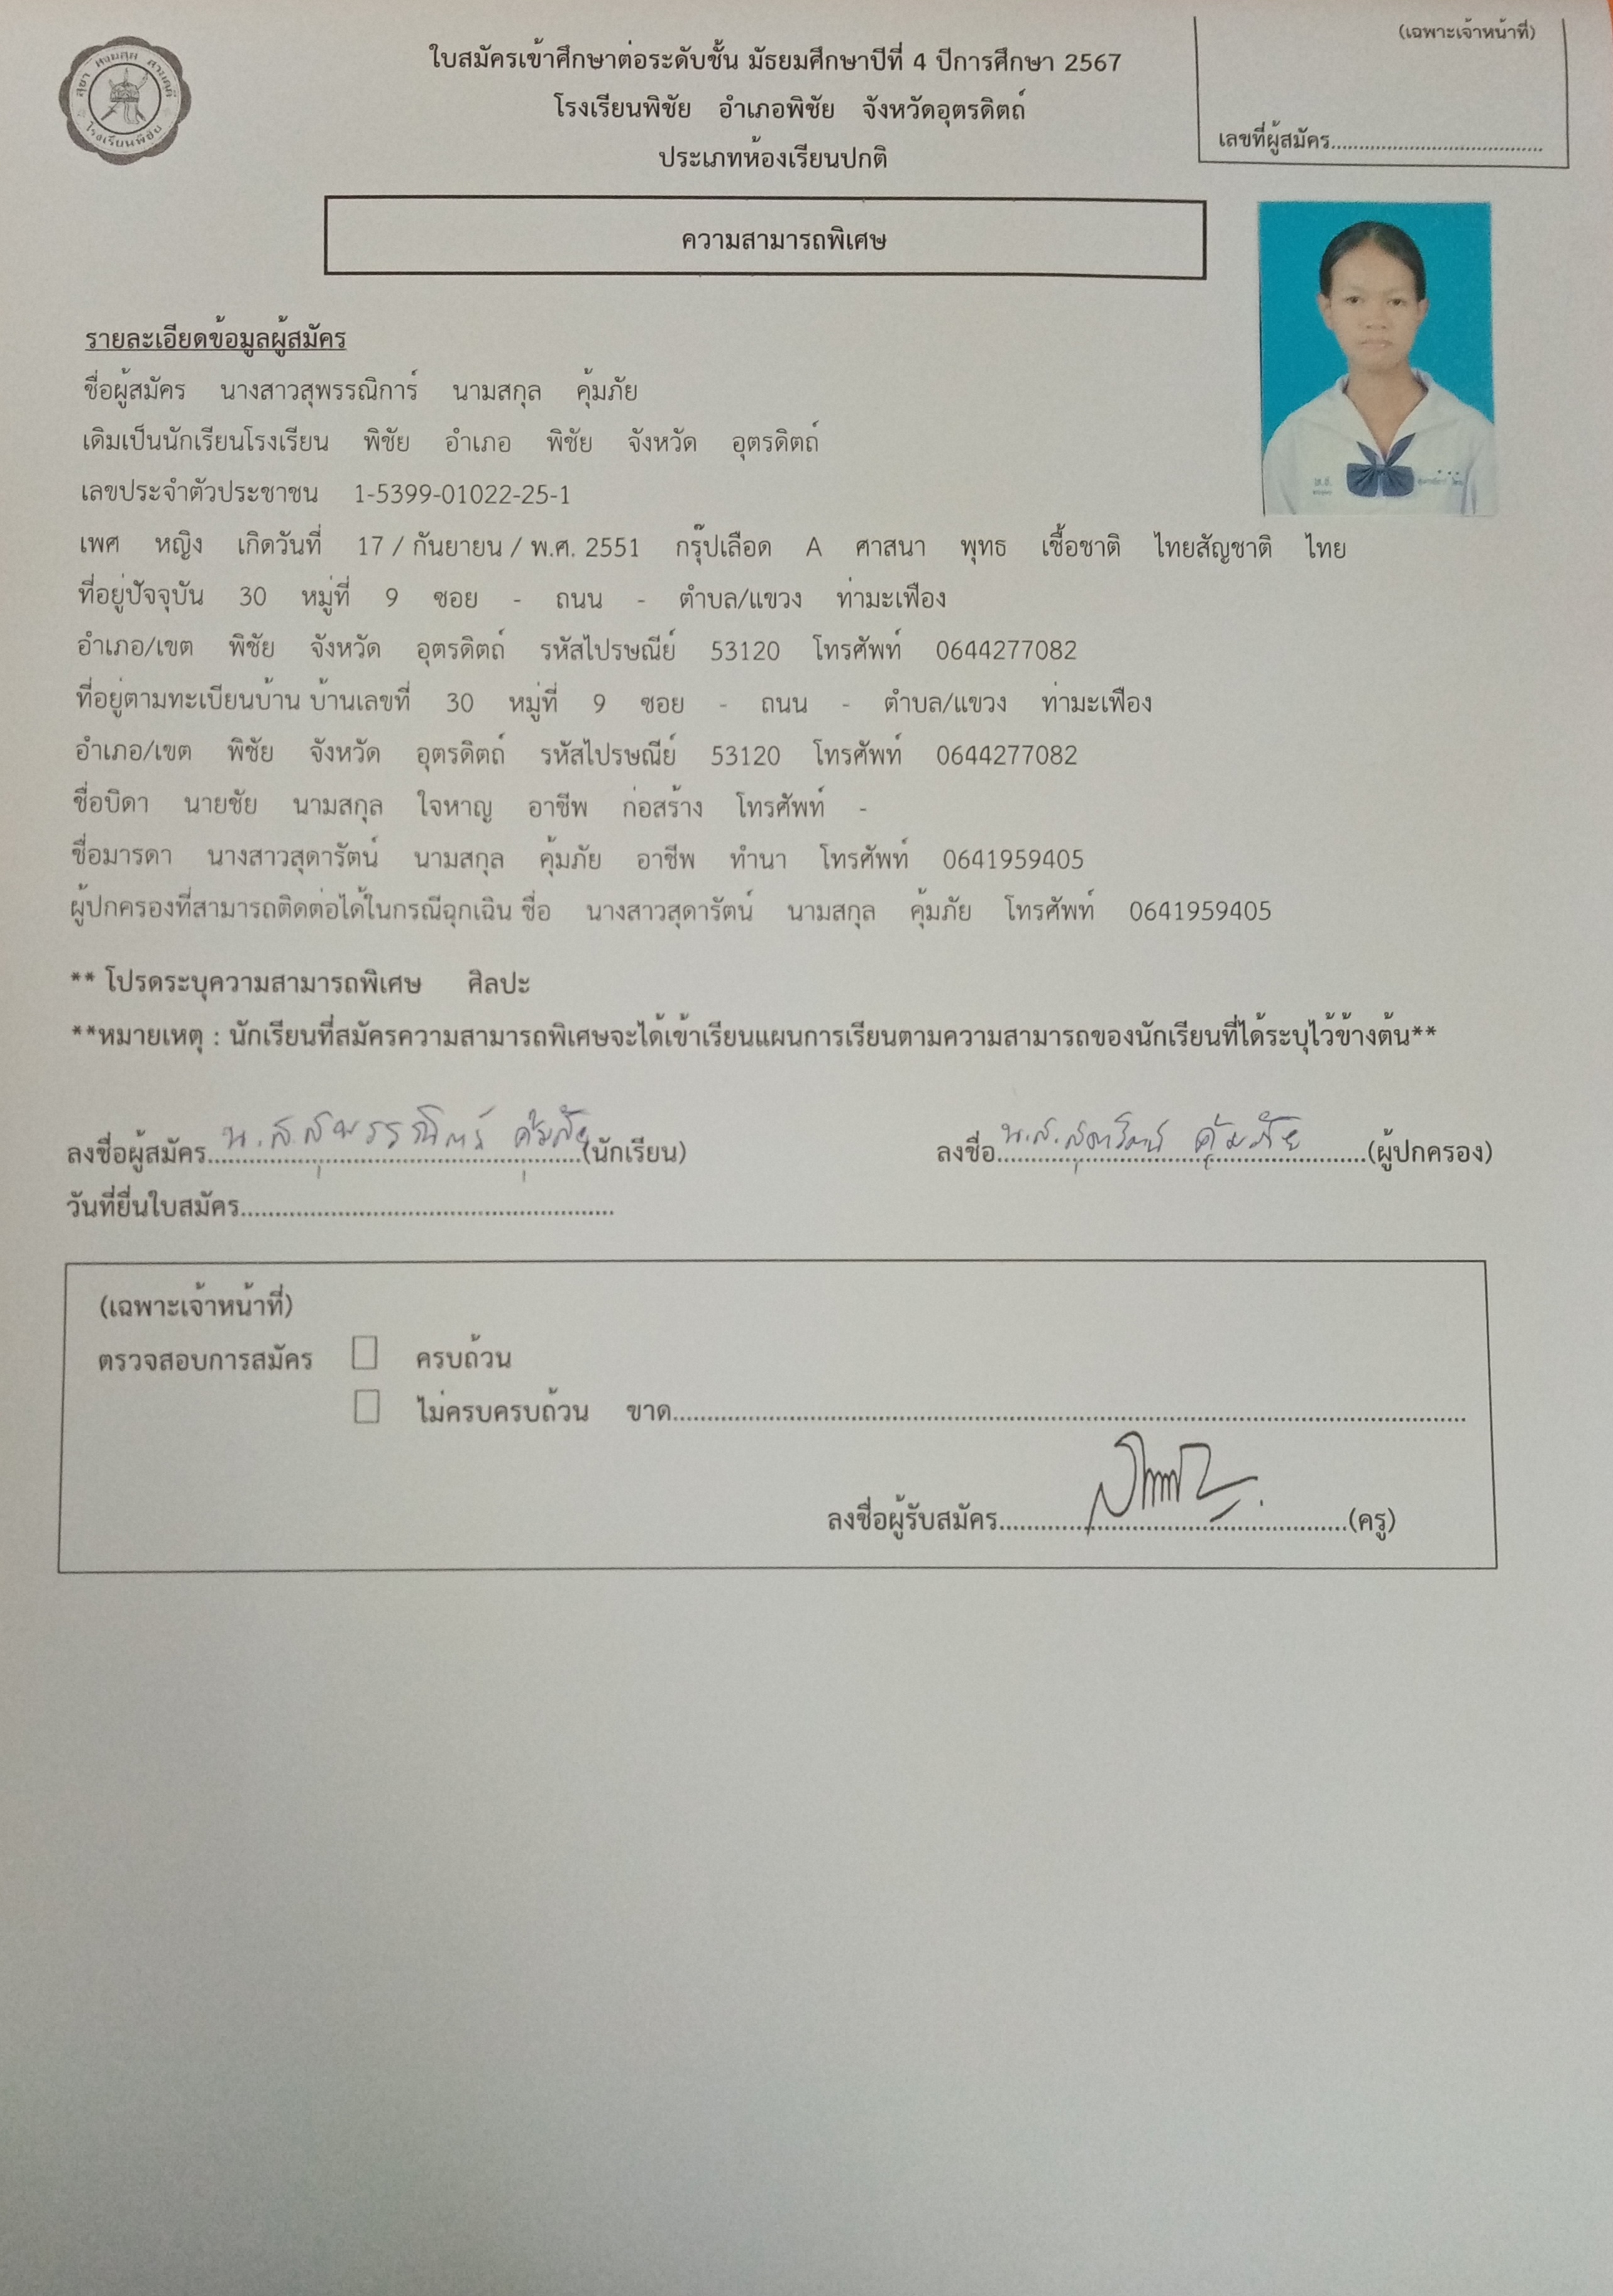 (เฉพาะเจ้าหน้าที่)
ใบสมัครเข้าศึกษาต่อระดับชั้น มัธยมศึกษาปีที่ 4 ปีการศึกษา 2567
โรงเรียนพิชัย อำเภอพิชัย จังหวัดอุตรดิตถ์
เลขที่ผู้สมัคร......................................
ประเภทห้องเรียนปกติ
โรงเรียนพิชัย
ความสามารถพิเศษ
รายละเอียดข้อมูลผู้สมัคร
ชื่อผู้สมัคร นางสาวสุพรรณิการ์ นามสกุล คุ้มภัย
เดิมเป็นนักเรียนโรงเรียน พิชัย อำเภอ พิชัย จังหวัด อุตรดิตถ์
เลขประจำตัวประชาชน 1-5399-01022-25-1
เพศ หญิง เกิดวันที่ 17 / กันยายน / พ.ศ. 2551 กรุ๊ปเลือด A ศาสนา พุทธ เชื้อชาติ ไทยสัญชาติ ไทย
ที่อยู่ปัจจุบัน 30 หมู่ที่ 9 ซอย - ถนน - ตำบล/แขวง ท่ามะเฟือง
อำเภอ/เขต พิชัย จังหวัด อุตรดิตถ์ รหัสไปรษณีย์ 53120 โทรศัพท์ 0644277082
ที่อยู่ตามทะเบียนบ้าน บ้านเลขที่ 30 หมู่ที่ 9 ซอย - ถนน - ตำบล/แขวง ท่ามะเฟือง
อำเภอ/เขต พิชัย จังหวัด อุตรดิตถ์ รหัสไปรษณีย์ 53120 โทรศัพท์ 0644277082
ชื่อบิดา นายชัย นามสกุล ใจหาญ อาชีพ ก่อสร้าง โทรศัพท์ -
ชื่อมารดา นางสาวสุดารัตน์ นามสกุล คุ้มภัย อาชีพ ทำนา โทรศัพท์ 0641959405
ผู้ปกครองที่สามารถติดต่อได้ในกรณีฉุกเฉิน ชื่อ นางสาวสุดารัตน์ นามสกุล คุ้มภัย โทรศัพท์ 0641959405
** โปรดระบุความสามารถพิเศษ ศิลปะ
**หมายเหตุ : นักเรียนที่สมัครความสามารถพิเศษจะได้เข้าเรียนแผนการเรียนตามความสามารถของนักเรียนที่ได้ระบุไว้ข้างต้น**
ลงชื่อผู้สมัคร น.ส.สุพรรณิการ์ คุ้มภัย (นักเรียน) ลงชื่อ น.ส.สุดารัตน์ คุ้มภัย (ผู้ปกครอง)
วันที่ยื่นใบสมัคร......................................................
(เฉพาะเจ้าหน้าที่)
ตรวจสอบการสมัคร ครบถ้วน
ไม่ครบครบถ้วน ขาด......................................................
ลงชื่อผู้รับสมัคร......................................................(ครู)